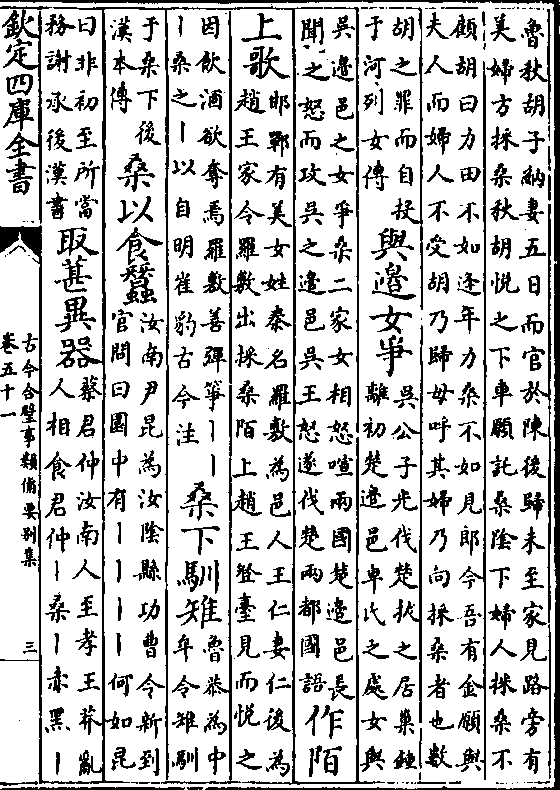 魯秋胡子納妻五日而官於陳後歸未至家見路旁有
美婦方採桑秋胡悅之下車願託桑陰下婦人採桑不
顧胡曰力田不如逢年力桑不如見郎今吾有金願與
夫人而婦人不受胡乃歸母呼其婦乃向採桑者也數
胡之罪而自投
于河列女傳
與邊女爭
吳公子光伐楚拔之居巢鍾
離初楚邉邑卑氏之處女與
吳邉邑之女爭桑二家女相怒喧兩國楚邉邑長
聞之怒而攻吳之邉邑吳王怒遂伐楚兩都國語
作陌
上歌
邯鄲有美女姓秦名羅敷為邑人王仁妻仁後為
趙王家令羅敷出採桑陌上趙王登臺見而悅之
因飲酒欲奪焉羅敷善彈箏丨丨
丨桑之丨以自明崔豹古今注
桑下馴雉
魯恭為中
牟令雉馴
于桑下後
漢本傳
桑以食蠶
汝南尹昆為汝陰縣功曹令新到
官問曰園中有丨丨丨丨何如昆
曰非初至所當
務謝承後漢書
取葚異器
蔡君仲汝南人至孝王莽亂
人相食君仲丨桑丨赤黑丨
欽定四庫全書
古今合璧事類備要别集
卷五十一
三